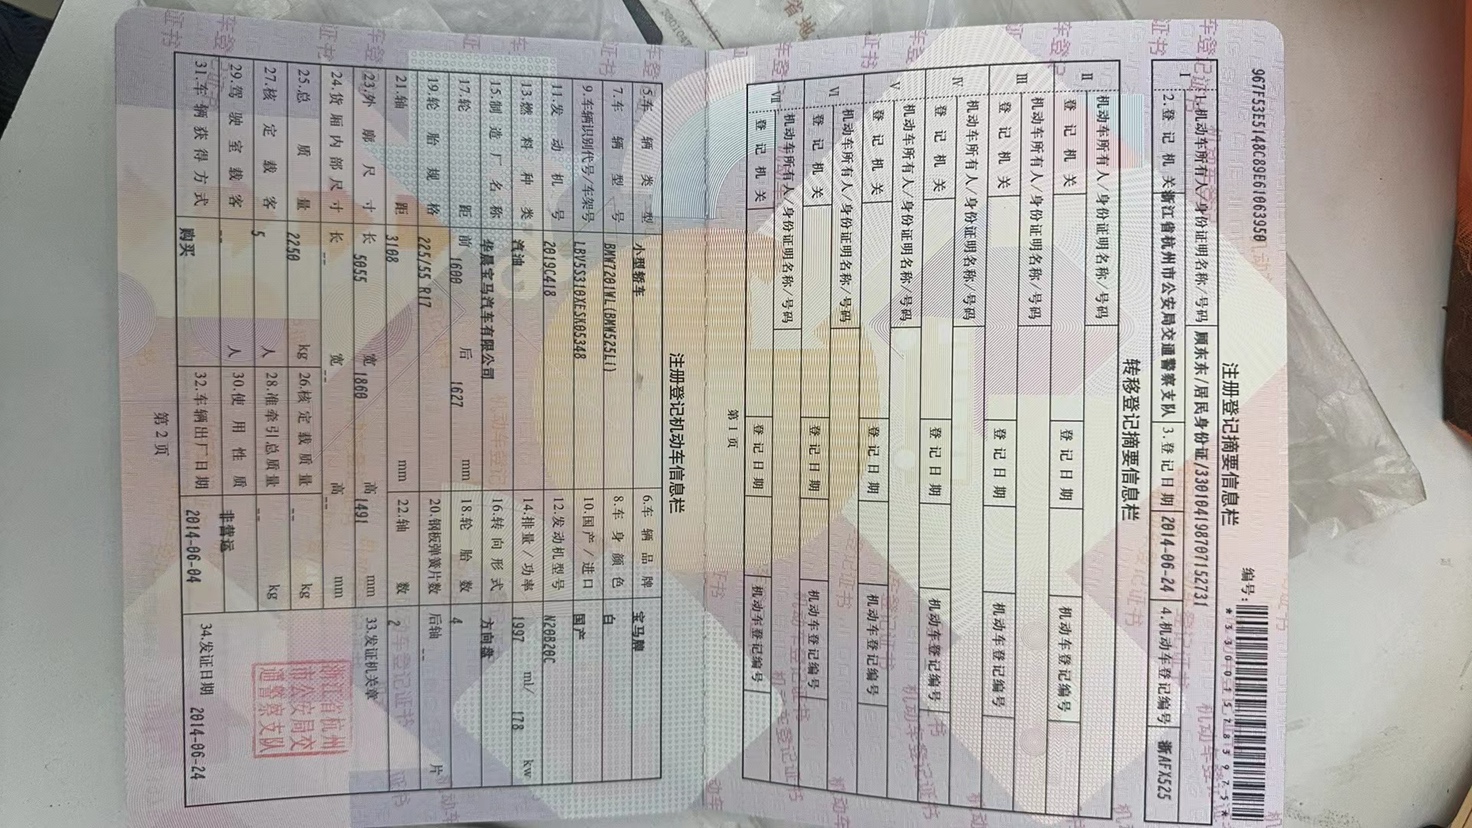 967F53E5148C89E61063950
编号:
*330015781975*
注册登记摘要信息栏
I 1.机动车所有人/身份证明名称/号码 顾东东/居民身份证/330104198707152731
2.登记机关 浙江省杭州市公安局交通警察支队 3.登记日期 2014-06-24 4.机动车登记编号 浙AFX525
转移登记摘要信息栏
II 机动车所有人/身份证明名称/号码
登记机关 登记日期 机动车登记编号
III 机动车所有人/身份证明名称/号码
登记机关 登记日期 机动车登记编号
IV 机动车所有人/身份证明名称/号码
登记机关 登记日期 机动车登记编号
V 机动车所有人/身份证明名称/号码
登记机关 登记日期 机动车登记编号
VI 机动车所有人/身份证明名称/号码
登记机关 登记日期 机动车登记编号
VII 机动车所有人/身份证明名称/号码
登记机关 登记日期 机动车登记编号
第1页
注册登记机动车信息栏
5.车辆类型 小型轿车 6.车辆品牌 宝马牌
7.车辆型号 BMW7201WL(BMW525Li) 8.车身颜色 白
9.车辆识别代号/车架号 LBV5S310XESK05348 10.国产/进口 国产
11.发动机号 2019C418 12.发动机型号 N20B20C
13.燃料种类 汽油 14.排量/功率 1997 ml/ 178 kw
15.制造厂名称 华晨宝马汽车有限公司 16.转向形式 方向盘
17.轮距 前 1600 后 1627 mm 18.轮胎数 4
19.轮胎规格 225/55 R17 20.钢板弹簧片数 后轴 -- 片
21.轴距 3108 mm 22.轴数 2
23.外廓尺寸 长 5055 宽 1860 高 1491 mm 33.发证机关章
24.货厢内部尺寸 长 -- 宽 -- 高 -- mm
25.总质量 2250 kg 26.核定载质量 -- kg
27.核定载客 5 人 28.准牵引总质量 -- kg
29.驾驶室载客 -- 人 30.使用性质 非营运
31.车辆获得方式 购买 32.车辆出厂日期 2014-06-04 34.发证日期 2014-06-24
浙江省杭州
市公安局交
通警察支队
第2页